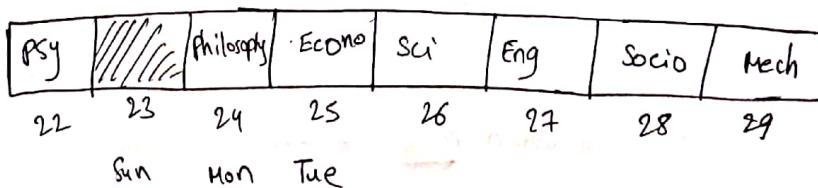 Psy Philosophy Econo Sci Eng Socio Mech
22 23 24 25 26 27 28 29
Sun Mon Tue